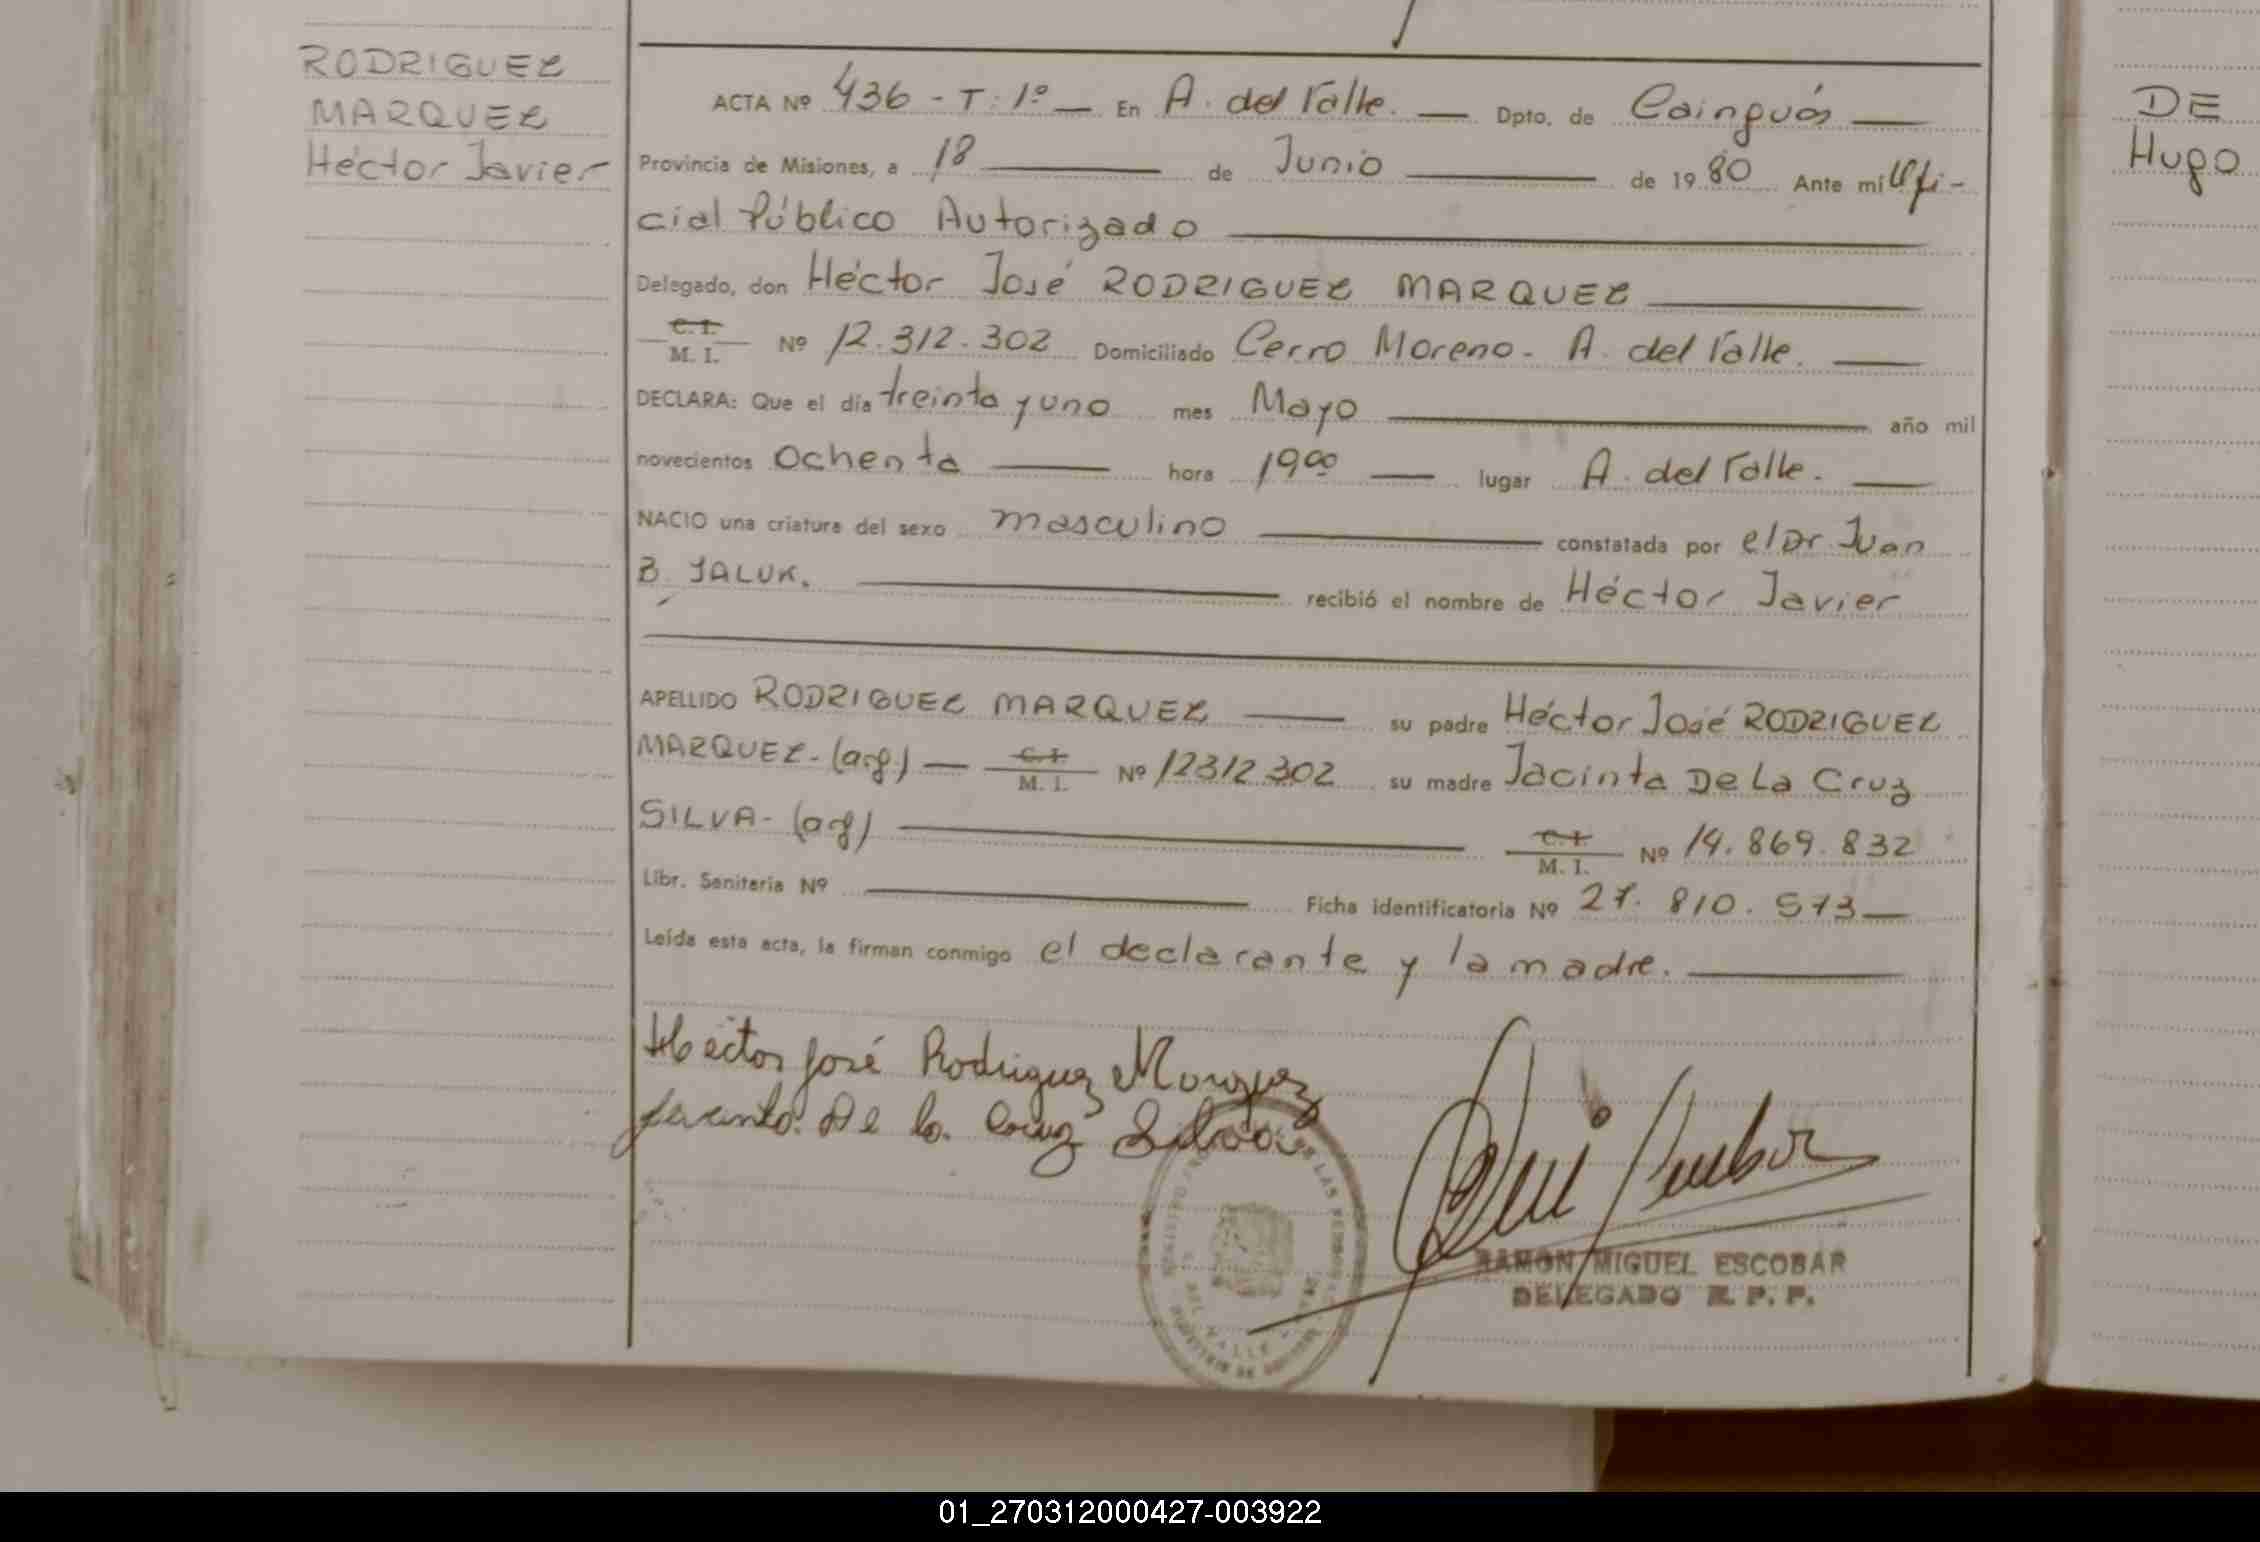 RODRIGUEZ
MARQUEZ
Héctor Javier
ACTA Nº 436 - T: 1º — En A. del Valle. — Dpto. de Cainguás —
Provincia de Misiones, a 18 — de Junio — de 19 80 Ante mí Ofi-
cial Público Autorizado —
Delegado, don Héctor José RODRIGUEZ MARQUEZ —
C. I. M. I. Nº 12.312.302 Domiciliado Cerro Moreno - A. del Valle. —
DECLARA: Que el día treinta y uno mes Mayo — año mil
novecientos ochenta — hora 19 00 — lugar A. del Valle. —
NACIO una criatura del sexo masculino — constatada por el Dr. Juan
B. JALUK. — recibió el nombre de Héctor Javier
APELLIDO RODRIGUEZ MARQUEZ — su padre Héctor José RODRIGUEZ
MARQUEZ - (arg.) — C. I. M. I. Nº 12312.302 su madre Jacinta De La Cruz
SILVA - (arg) — C. I. M. I. Nº 14.869.832
Libr. Sanitaria Nº — Ficha identificatoria Nº 27.810.573 —
Leída esta acta, la firman conmigo el declarante y la madre. —
Héctor José Rodriguez Marquez
Jacinta De la Cruz Silva
RAMON MIGUEL ESCOBAR
DELEGADO R. P. P.
DE LAS PERSONAS
DEL VALLE
MINISTERIO DE
DE
Hugo
01_270312000427-003922